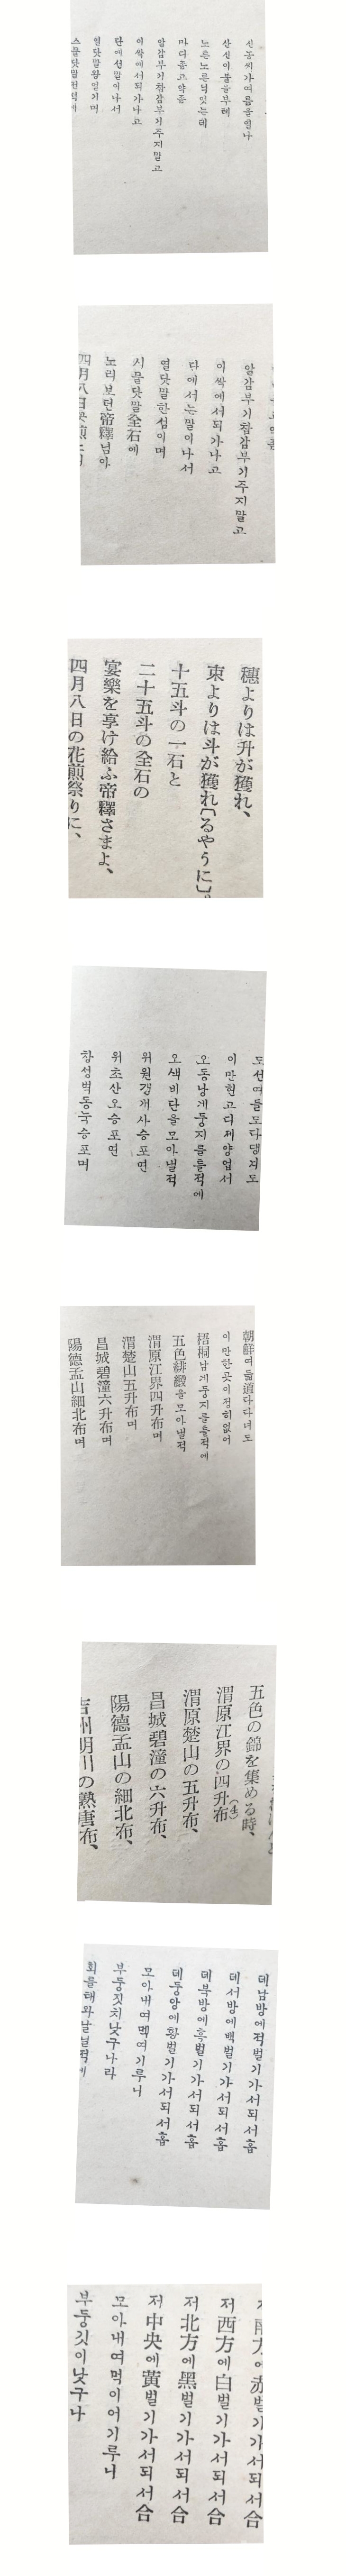 신농씨가여름을열나
산신이불을부테
노른노른넉잇는데
마디종고약종
알감부기참감부기주지말고
이싹에서되가나고
단에선말이나서
열닷말왕일기며
스물닷말전석에
알감부기참감부기주지말고
이싹에서되가나고
다에서는말이나서
열닷말한섬이며
시믈닷말全石에
노리보던帝釋님아
四月八日
穗よりは升が獲れ、
束よりは斗が獲れ〔るやうに〕。
十五斗の一石と
二十五斗の全石の
宴樂を享け給ふ帝釋さまよ、
四月八日の花煎祭りに、
도선여들도다댕겨도
이만헌고디제양업서
오동낭게둥지를틀적에
오색비단을모아낼적
위원갱개사승포연
위초산오승포연
창성벽동눅승포며
朝鮮여들道다다녀도
이만한곳이정히없어
梧桐남게둥지를틀적에
五色緋緞을모아낼적
渭原江界四升布며
渭楚山五升布며
昌城碧潼六升布며
陽德孟山細北布며
五色の錦を集める時、
渭原江界の四升布(4)
渭原楚山の五升布、
昌城碧潼の六升布、
陽德孟山の細北布、
吉州明川の熟唐布、
데남방에적벌기가서되서홉
데서방에백벌기가서되서홉
데북방에흑벌기가서되서홉
데둥앙에황벌기가서되서홉
모아내여멕여기루니
부둥짓치낫구나라
회를태와날닐적에
저南方에赤벌기가서되서合
저西方에白벌기가서되서合
저北方에黑벌기가서되서合
저中央에黃벌기가서되서合
모아내여먹이어기루니
부둥깃이낫구나